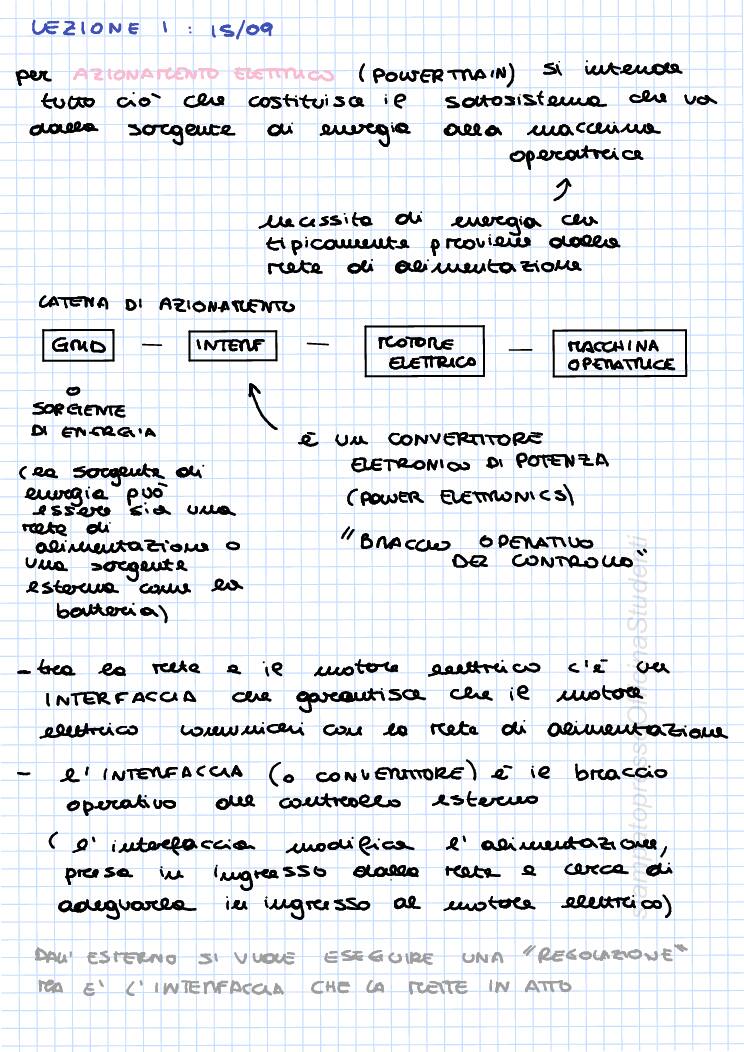 LEZIONE 1 : 15/09
per AZIONAMENTO ELETTRICO (POWERTRAIN) si intende
tutto ciò che costituisce il sottosistema che va
dalla sorgente di energia alla macchina
operatrice
necessita di energia che
tipicamente proviene dalla
rete di alimentazione
CATENA DI AZIONAMENTO
GRID — INTERF — MOTORE ELETTRICO — MACCHINA OPERATRICE
o
SORGENTE
DI ENERGIA
(la sorgente di
energia può
essere sia una
rete di
alimentazione o
una sorgente
esterna come la
batteria)
è un CONVERTITORE
ELETRONICO DI POTENZA
(POWER ELETRONICS)
"BRACCIO OPERATIVO
DEL CONTROLLO"
- tra la rete e il motore elettrico c'è un
INTERFACCIA che garantisce che il motore
elettrico comunichi con la rete di alimentazione
- l'INTERFACCIA (o CONVERTITORE) è il braccio
operativo del controllo esterno
( l'interfaccia modifica l'alimentazione,
presa in ingresso dalla rete e cerca di
adeguarla in ingresso al motore elettrico)
DALL' ESTERNO SI VUOLE ESEGUIRE UNA "REGOLAZIONE"
MA E' L'INTERFACCIA CHE LA METTE IN ATTO